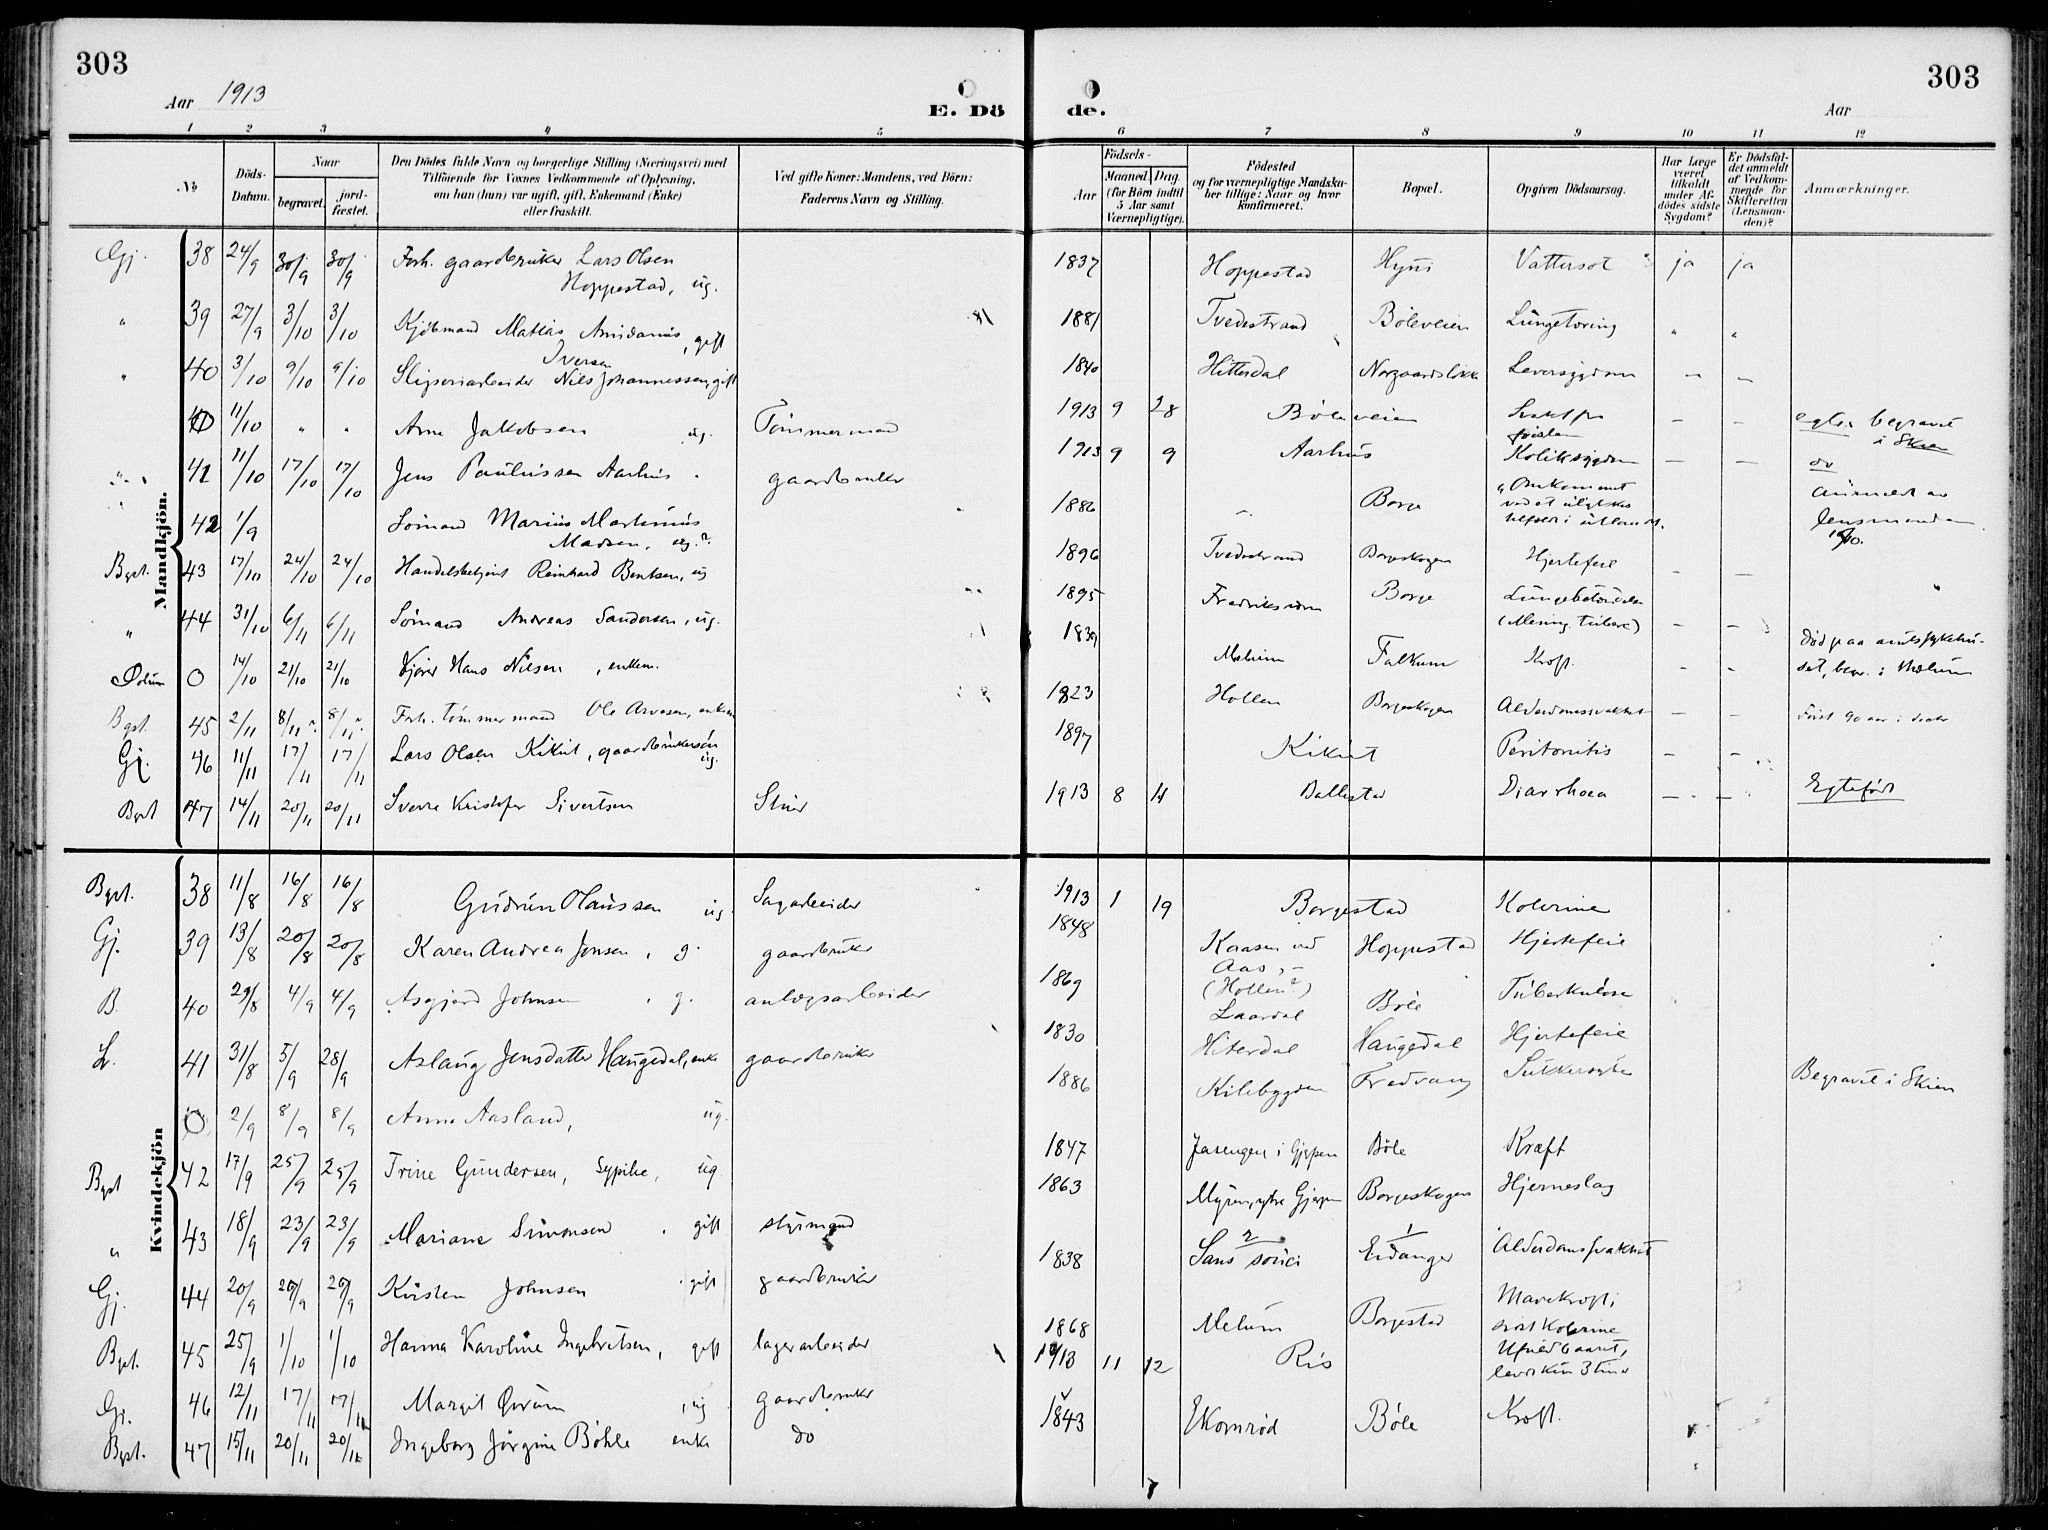 303
303
Aar 1913
Aar
E. Dö
de.
1 2 3 4 5 6 7 8 9 10 11 12
No
Döds-Datum.
Naar
begravet.
jord-fæstet.
Den Dödes fulde Navn og borgerlige Stilling (Næringsvei) med
Tilföiende for Voxnes Vedkommende af Oplysning,
om han (hun) var ugift, gift, Enkemand (Enke)
eller fraskilt.
Ved gifte Koner: Mandens, ved Börn:
Faderens Navn og Stilling.
Födsels-
Aar
Maaned. Dag.
(for Börn indtil
5 Aar samt
Værnepligtige).
Födested
og for værnepligtige Mandska-
ber tillige: Naar og hvor
konfirmeret.
Bopæl.
Opgiven Dödsaarsag.
Har Læge
været
tilkaldt
under Af-
dödes sidste
Sygdom?
Er Dödsfal-
det anmeldt
af Vedkom-
mende for
Skifteretten
(Lensman-
den)?
Anmærkninger.
Mandkjön.
Gj. 38 24/9 30/9 30/9 Forh. gaardbruker Lars Olsen Hoppestad, ug. 1837 Hoppestad Hyni Vattersot ja ja
" 39 27/9 3/10 3/10 Kjøbmand Matias Amidanus Iversen, gift 1881 Tvedestrand Bøleveien Lungetæring " "
" 40 3/10 9/10 9/10 Sliperiarbeider Nils Johannessen, gift 1840 Hitterdal Norgaardsløkka Leversygdom — —
11/10 " " Arne Jakobsen ug. Tømmermand 1913 9 28 Bøleveien Svakt fra fødselen — — egtef. begravet i Skien
41 11/10 17/10 17/10 Jens Paulussen Aarhus gaardbruker 1913 9 9 Aarhus Koliksygdom — — do
42 1/9 Sømand Marius Martinius Madsen, ug.? 1886 " Borge Omkommet ved et ulykkestilfelde i utlandet. Anmeldt av lensmanden
Bgst. 43 17/10 24/10 24/10 Handelsbetjent Reinhard Bentsen, ug 1896 Tvedestrand Borgeskogen Hjertefeil — —
" 44 31/10 6/11 6/11 Sømand Andreas Sandersen, ug. 1895 Fredriksværn Borge Lungebetændelse (Mening. tuberc) — —
Solum 0 14/10 21/10 21/10 Kjører Hans Nilsen, enkem. 1839 Melum Falkum Kræft. — — Død paa amtssykehuset, begr. i Mælum
Bgst. 45 2/11 8/11? 8/11? Forh. tømmermand Ole Arvesen, enkem 1823 Hollen Borgeskogen Alderdomssvakhet — —
Gj. 46 11/11 17/11 17/11 Lars Olsen Kikut, gaardbrukersøn ug. 1897 Kikut Peritonitis — —
Bgst 47 14/11 20/11 20/11 Sverre Kristofer Sivertsen 1913 8 4 Ballestad Diarrhoea — — Egtefødt
Kvindekjön
Bgst. 38 11/8 16/8 16/8 Gudrun Olaussen ug. Sagarbeider 1913 1 19 Borgestad Kolerine
Gj. 39 13/8 20/8 20/8 Karen Andrea Jensen, g. gaardbruker 1848 Kaasen ved Aas, (Hollen?) Hoppestad Hjertefeil
B. 40 29/8 4/9 4/9 Asgjerd Johnsen, g. anlægsarbeider 1869 Laardal Bøle Tuberkulose
L. 41 31/8 5/9 28/9 Aslaug Jensdatter Haugedal, enke gaardbruker 1830 Hiterdal Haugedal Hjertefeil
0 2/9 8/9 8/9 Anna Aasland, ug. 1886 Kilebygden Fredvang Sukkersyke Begravet i Skien
Bgst 42 17/9 25/9 25/9 Trine Gundersen, Sypike, ug. 1847 Jarengen i Gjerpen Bøle Kræft
" 43 18/9 23/9 23/9 Mariane Simonsen, gift styrmand 1863 Myren, ytre Gjerpen Borgeskogen Hjerneslag
Gj. 44 20/9 26/9 26/9 Kirsten Johnsen, gift gaardbruker 1838 Sans souci Eidanger Alderdomssvakhet
Bgst. 45 25/9 1/10 1/10 Hanna Karoline Ingebretsen, gift lagerarbeider 1868 Melum Borgestad Mavekræft, sidst Kolerine
Gj. 46 12/11 17/11 17/11 Margit ug gaardbruker 1913 11 12 Ris Ufuldbaaret, levde kun 3 timer
Bgst. 47 15/11 20/11 20/11 Ingeborg Jørgine Bøhle enke do 1843 Ekornrød Bøle Kræft.